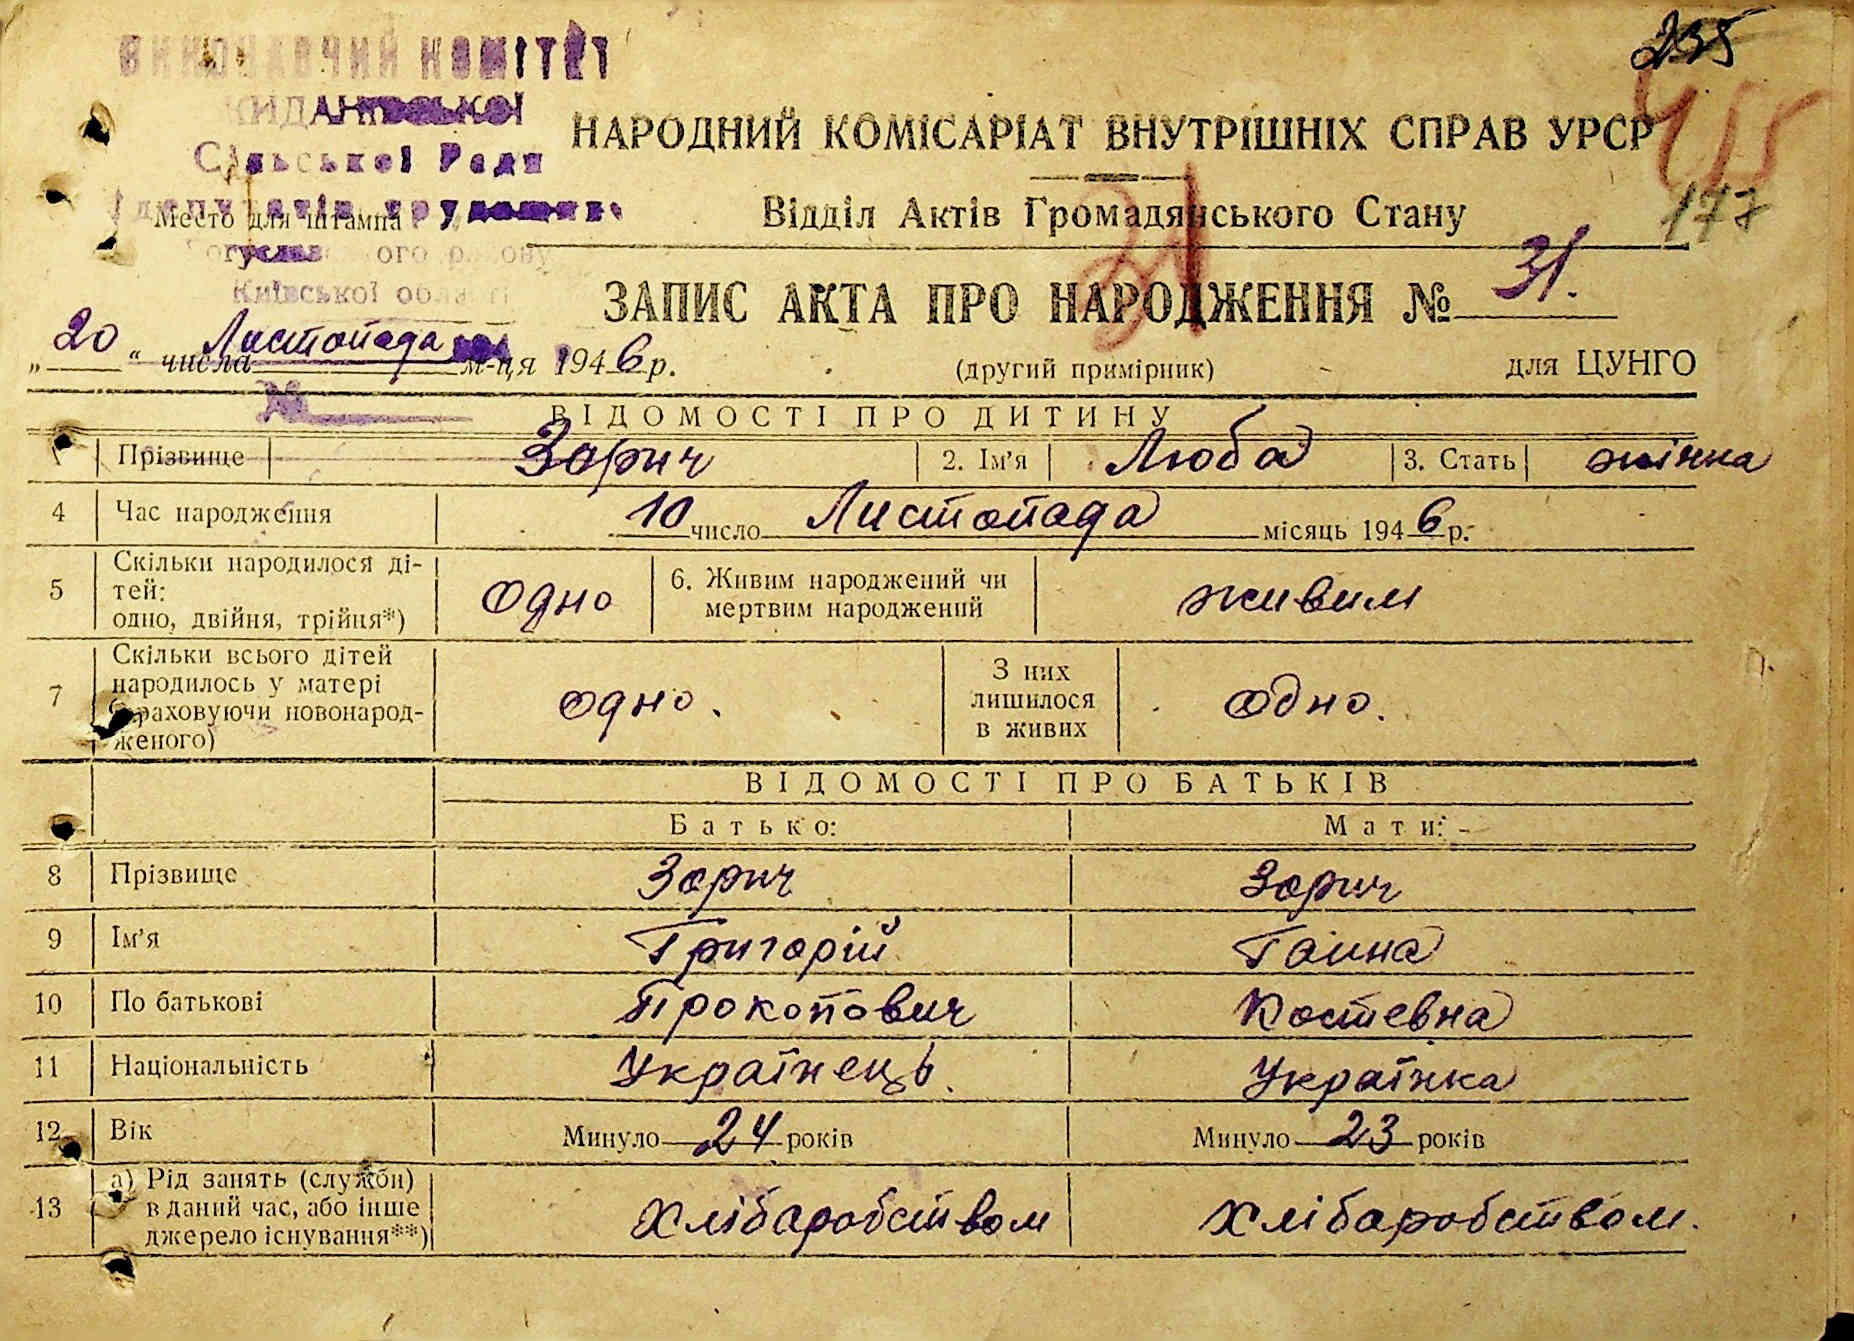 255
ВИКОНАВЧИЙ КОМІТЕТ
Сільської Ради
депутатів трудящих
Київської області
455
177
НАРОДНИЙ КОМІСАРІАТ ВНУТРІШНІХ СПРАВ УРСР
Место для штампа
Відділ Актів Громадянського Стану
31
ЗАПИС АКТА ПРО НАРОДЖЕННЯ № 31.
„20“ числа Листопада м-ця 1946 р. (другий примірник) для ЦУНГО
№
ВІДОМОСТІ ПРО ДИТИНУ
1 Прізвище Зорич 2. Ім'я Люба 3. Стать жінка
4 Час народження 10 число Листопада місяць 1946 р.
5 Скільки народилося ді-
тей:
одно, двійня, трійня*) одно 6. Живим народжений чи
мертвим народжений живим
7 Скільки всього дітей
народилось у матері
(раховуючи новонарод-
женого) одно. З них
лишилося
в живих одно.
ВІДОМОСТІ ПРО БАТЬКІВ
Батько: Мати:
8 Прізвище Зорич Зорич
9 Ім'я Григорій Ганна
10 По батькові Прокопович Костевна
11 Національність Українець. Українка
12 Вік Минуло 24 років Минуло 23 років
13 а) Рід занять (служби)
в даний час, або інше
джерело існування**) хлібаробством хлібаробством.